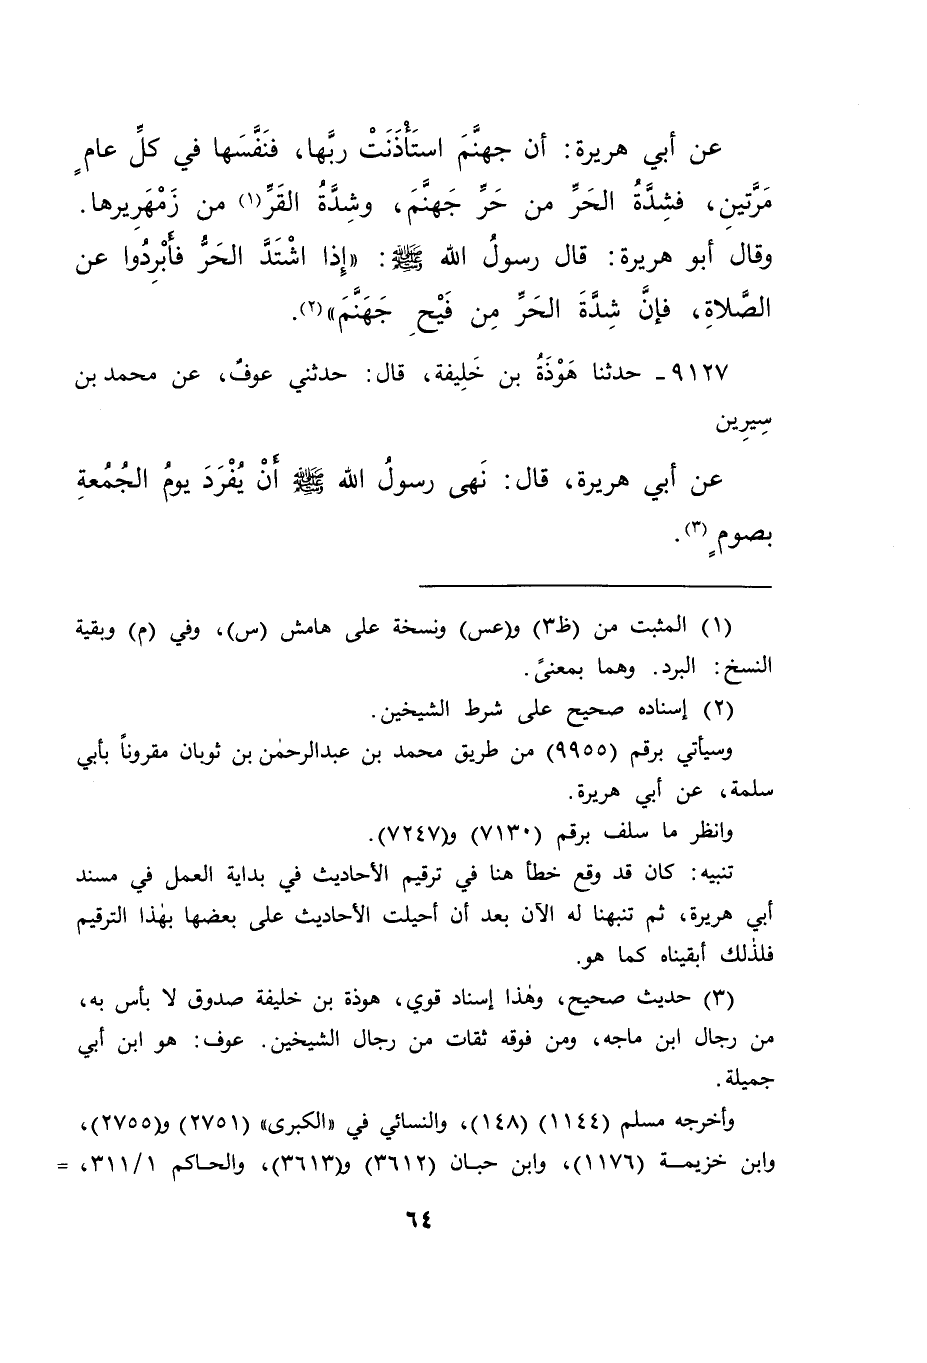 عن أبي هريرة: أن جهنَّمَ استَأْذَنَتْ ربَّها، فنَفَّسَها في كلِّ عامٍ
مَرَّتينِ، فشِدَّةُ الحَرِّ من حَرِّ جَهنَّمَ، وشِدَّةُ القَرِّ(١) من زَمْهَرِيرها.
وقال أبو هريرة: قال رسولُ الله ﷺ: «إِذا اشْتَدَّ الحَرُّ فأَبْرِدُوا عن
الصَّلاةِ، فإنَّ شِدَّةَ الحَرِّ مِن فَيْحِ جَهَنَّمَ»(٢).
٩١٢٧ـ حدثنا هَوْذَةُ بن خَلِيفة، قال: حدثني عوفٌ، عن محمد بن
سِيرِين
عن أبي هريرة، قال: نَهى رسولُ الله ﷺ أَنْ يُفْرَدَ يومُ الجُمُعةِ
بصومٍ(٣).
(١) المثبت من (ظ٣) و(عس) ونسخة على هامش (س)، وفي (م) وبقية
النسخ: البرد. وهما بمعنىً.
(٢) إسناده صحيح على شرط الشيخين.
وسيأتي برقم (٩٩٥٥) من طريق محمد بن عبدالرحمٰن بن ثوبان مقروناً بأبي
سلمة، عن أبي هريرة.
وانظر ما سلف برقم (٧١٣٠) و(٧٢٤٧).
تنبيه: كان قد وقع خطأ هنا في ترقيم الأحاديث في بداية العمل في مسند
أبي هريرة، ثم تنبهنا له الآن بعد أن أحيلت الأحاديث على بعضها بهٰذا الترقيم
فلذٰلك أبقيناه كما هو.
(٣) حديث صحيح، وهٰذا إسناد قوي، هوذة بن خليفة صدوق لا بأس به،
من رجال ابن ماجه، ومن فوقه ثقات من رجال الشيخين. عوف: هو ابن أبي
جميلة.
وأخرجه مسلم (١١٤٤) (١٤٨)، والنسائي في «الكبرى» (٢٧٥١) و(٢٧٥٥)،
وابن خزيمـة (١١٧٦)، وابن حبـان (٣٦١٢) و(٣٦١٣)، والحـاكم ٣١١/١، =
٦٤